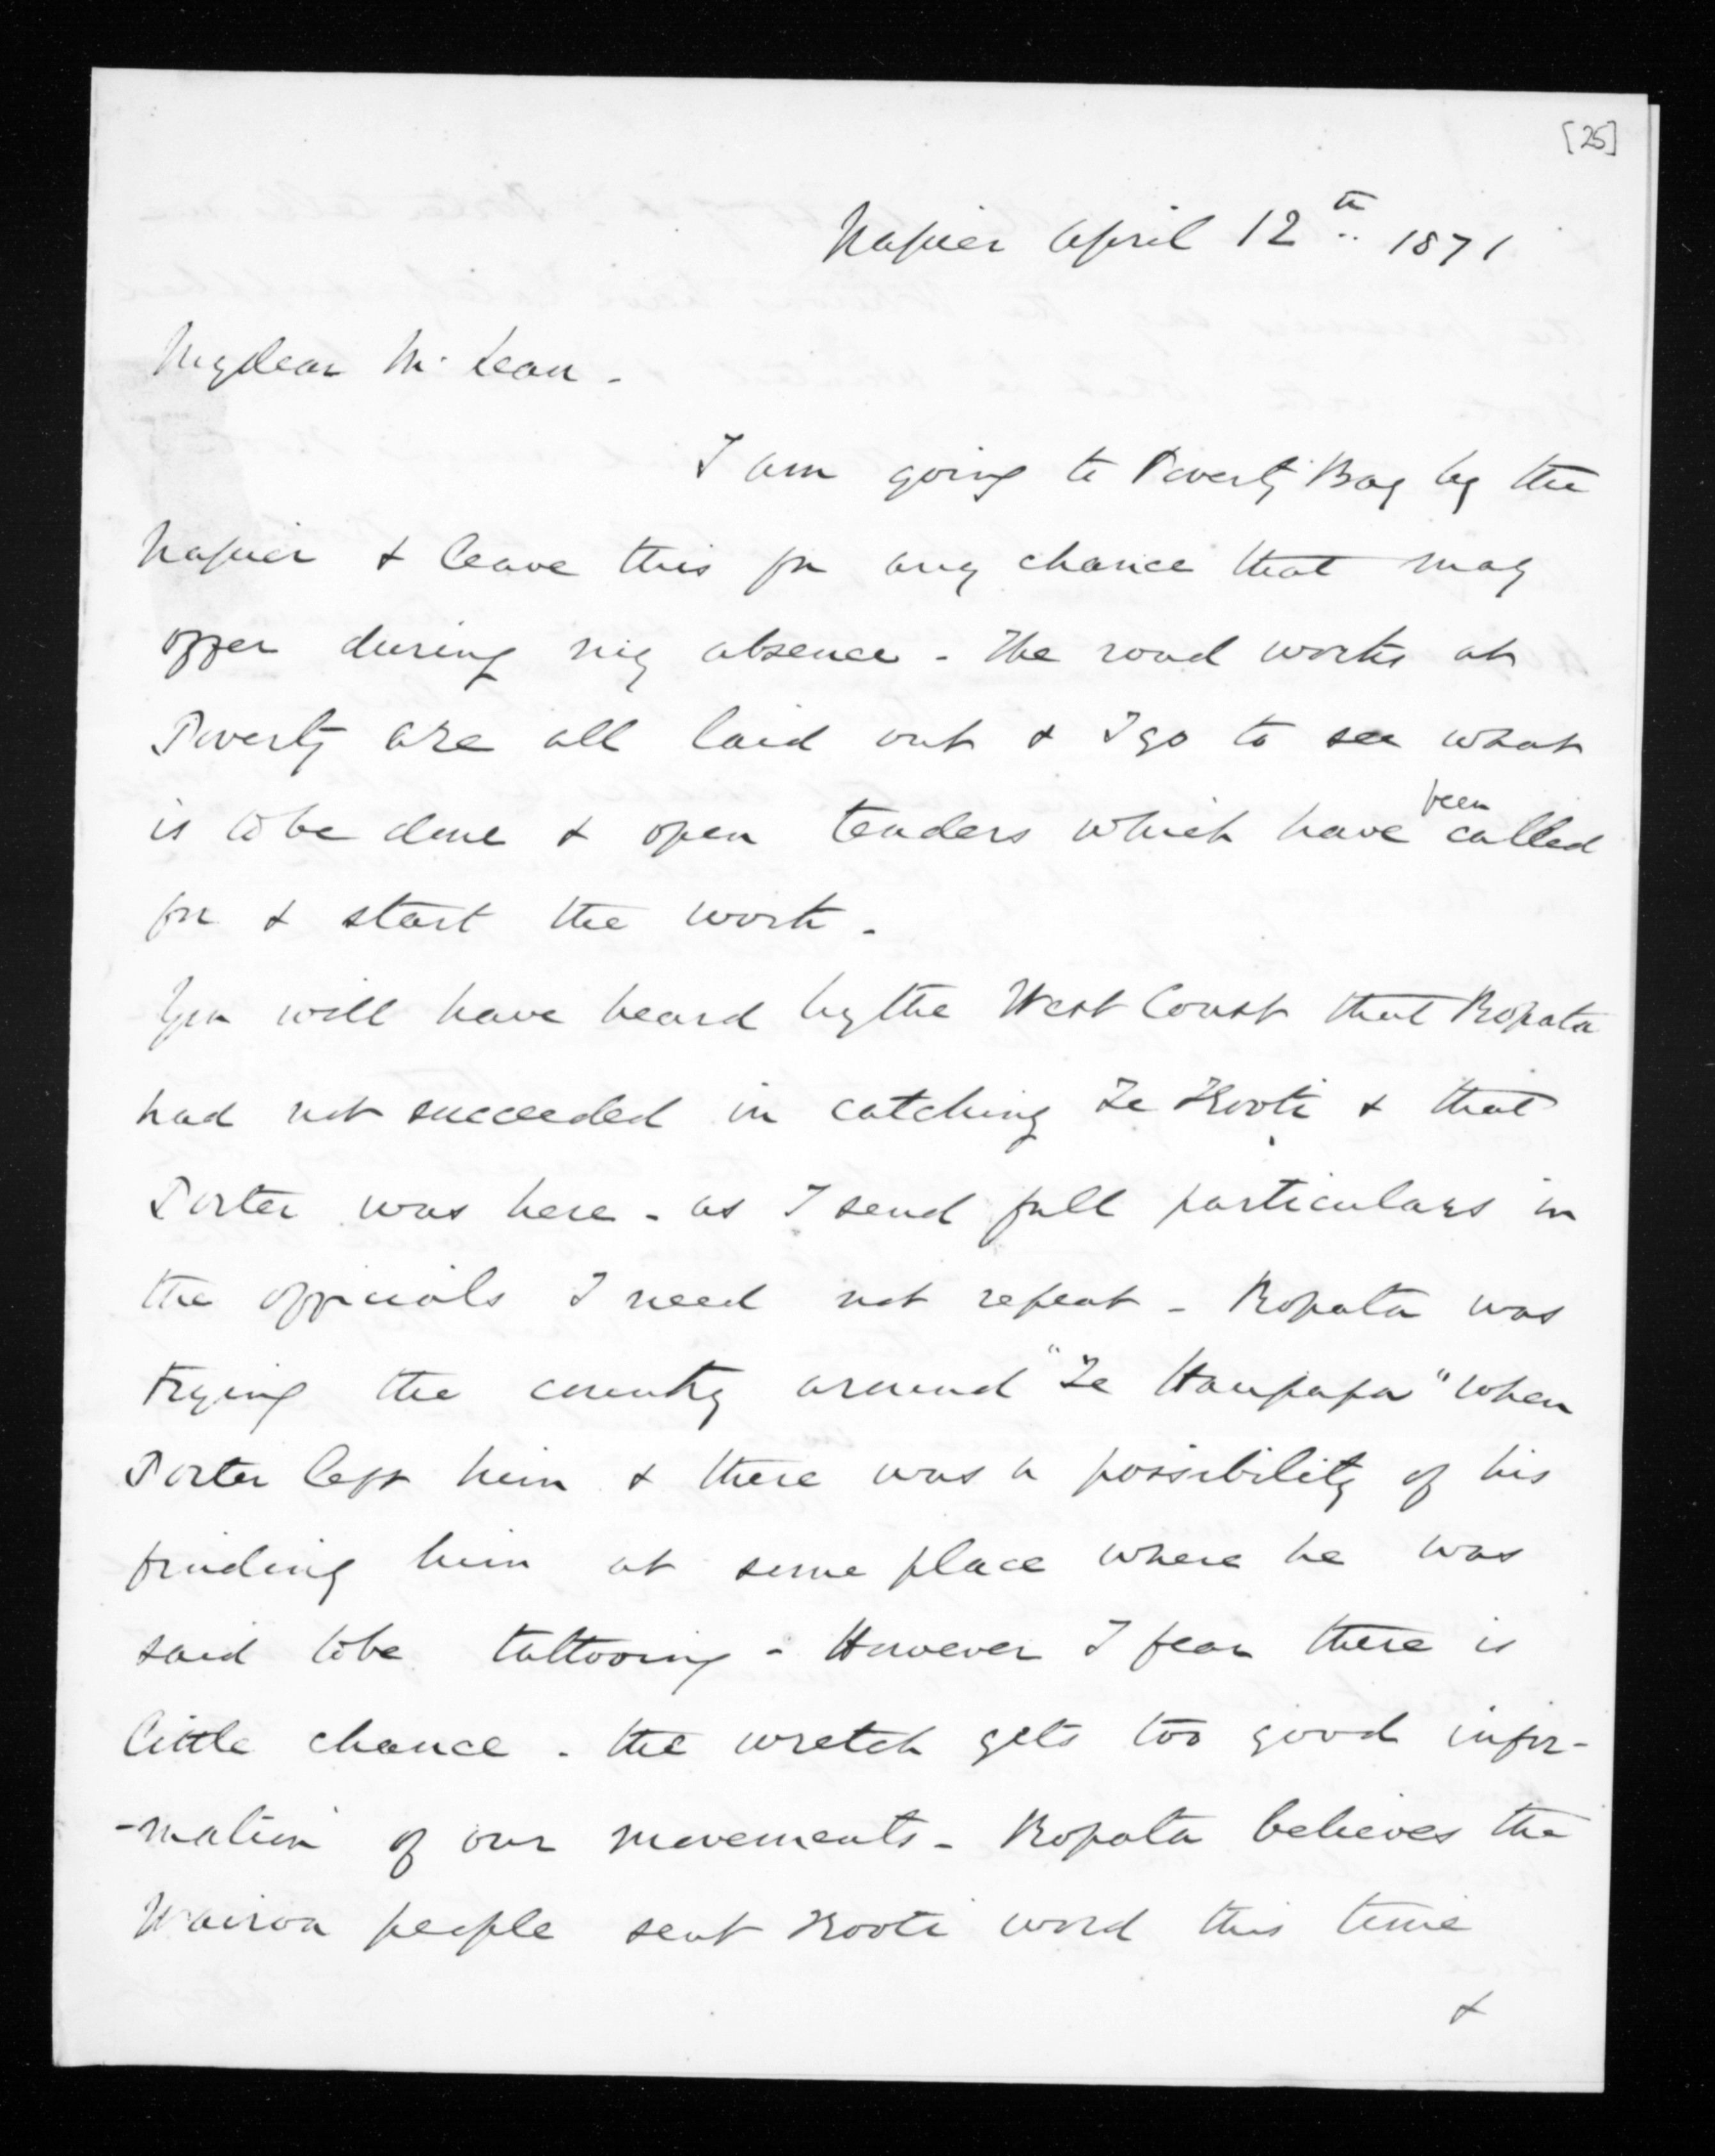 [25]
Napier April 12th 1871
My dear McLean -
I am going to Poverty Bay by the
Napier & leave this for any chance that may
offer during my absence - The road works at
Poverty are all laid out & I go to see what
is to be done & open tenders which have been called
for & start the work -
You will have heard by the West Coast that Ropata
had not succeeded in catching Te Kooti & that
Porter was here - as I send full particulars in
the officials I need not repeat - Ropata was
trying the country around "Te Haupapa" when
Porter left him & there was a possibility of his
finding him at some place where he was
said to be tattooing - However I fear there is
little chance - the wretch gets too good infor-
-mation of our movements - Ropata believes the
Wairoa people sent Kooti word this time
&